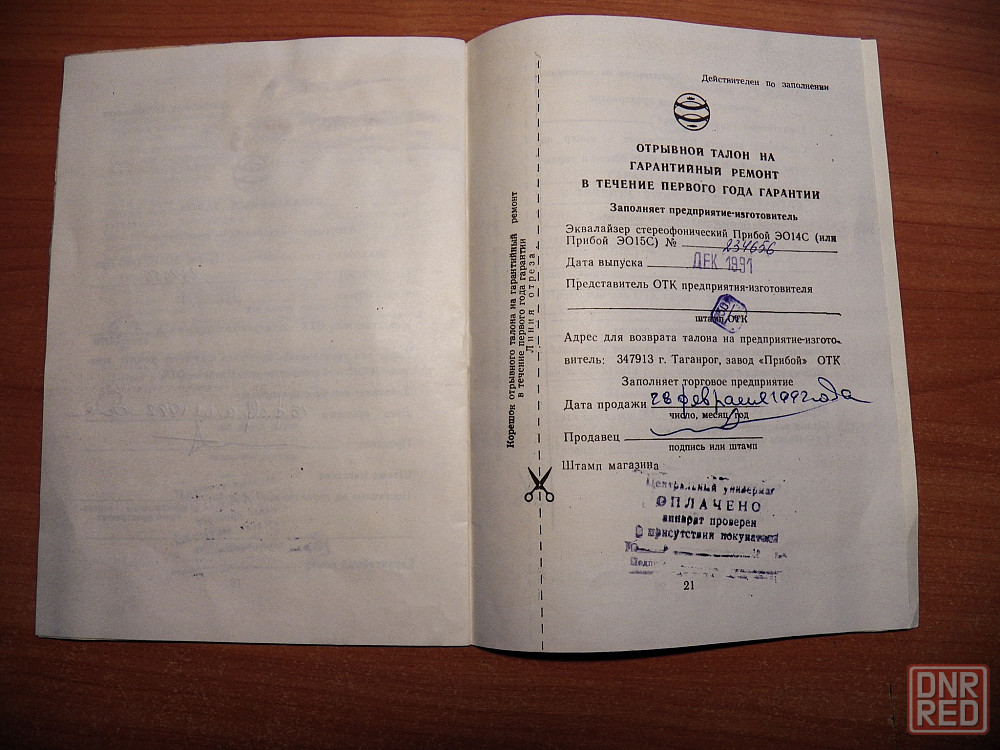 Корешок отрывного талона на гарантийный ремонт
в течение первого года гарантии
Линия отреза
Действителен по заполнении
ОТРЫВНОЙ ТАЛОН НА
ГАРАНТИЙНЫЙ РЕМОНТ
В ТЕЧЕНИЕ ПЕРВОГО ГОДА ГАРАНТИИ
Заполняет предприятие-изготовитель
Эквалайзер стереофонический Прибой ЭО14С (или
Прибой ЭО15С) № 234656
Дата выпуска ДЕК 1991
Представитель ОТК предприятия-изготовителя
штамп ОТК
Адрес для возврата талона на предприятие-изгото-
витель: 347913 г. Таганрог, завод «Прибой» ОТК
Заполняет торговое предприятие
Дата продажи 28 февраля 1992 года
число, месяц, год
Продавец
подпись или штамп
Штамп магазина
Центральный универмаг
ОПЛАЧЕНО
аппарат проверен
в присутствии покупателя
21
DNR
RED